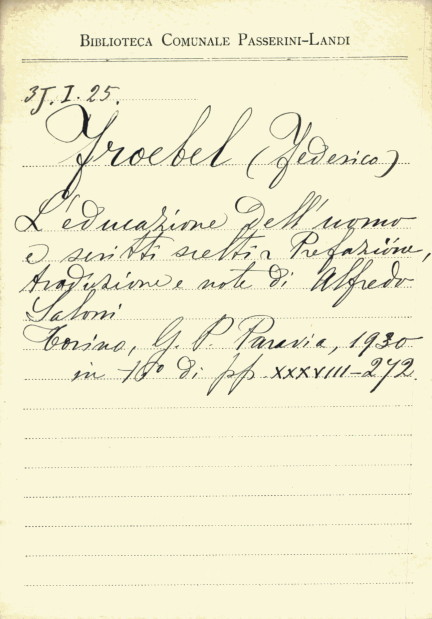 BIBLIOTECA COMUNALE PASSERINI-LANDI
3J.I.25.
Froebel (Federico)
L'educazione dell'uomo
e scritti scelti Prefazione,
traduzione e note di Alfredo
Saloni
Torino, G. P. Paravia, 1930
in di pp. XXXVIII-272.